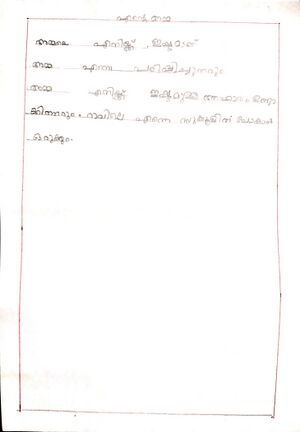 എന്റെ അമ്മ
അമ്മയെ എനിക്ക് ഇഷ്ടമാണ്
അമ്മ എന്നെ പഠിപ്പിച്ചുതരും
അമ്മ എനിക്ക് ഇഷ്ടമുള്ള ആഹാരം ഉണ്ടാ
ക്കിത്തരും. രാവിലെ എന്നെ സ്കൂളിൽ പോകാൻ
ഒരുക്കും.